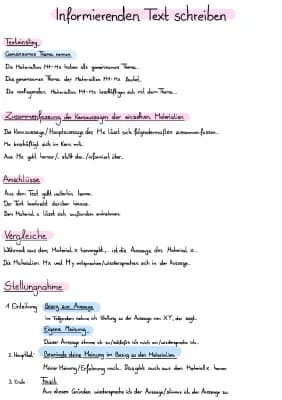 Informierenden Text schreiben
Texteinstieg
Gemeinsames Thema nennen
Die Materialien M1-Mx haben als gemeinsames Thema...
Das gemeinsame Thema der Materialien M1-Mx lautet...
Die vorliegenden Materialien M1-Mx beschäftigen sich mit dem Thema...
Zusammenfassung der Kernaussagen der einzelnen Materialien
Die Kernaussage / Hauptaussage des Mx lässt sich folgendermaßen zusammenfassen...
Mx beschäftigt sich im Kern mit...
Aus Mx geht hervor /... stellt dar.../informiert über...
Anschlüsse
Aus dem Text geht weiterhin hervor...
Der Text beschreibt darüber hinaus...
Dem Material x lässt sich außerdem entnehmen
Vergleiche
Während aus dem Material x hervorgeht,... ist die Aussage des Material x...
Die Materialien Mx und My entsprechen/wiedersprechen sich in der Aussage...
Stellungnahme
1. Einleitung: Bezug zur Aussage
Im Folgenden nehme ich Stellung zu der Aussage von XY, der sagt...
Eigene Meinung
Dieser Aussage stimme ich zu/ schließe ich mich an/wiederspreche ich...
2. Hauptteil: Begründe deine Meinung im Bezug zu den Materialien
Meiner Meinung/Erfahrung nach... Dies geht auch aus dem Material x hervor
3. Ende: Fazit
Aus diesen Gründen wiederspreche ich der Aussage/stimme ich der Aussage zu